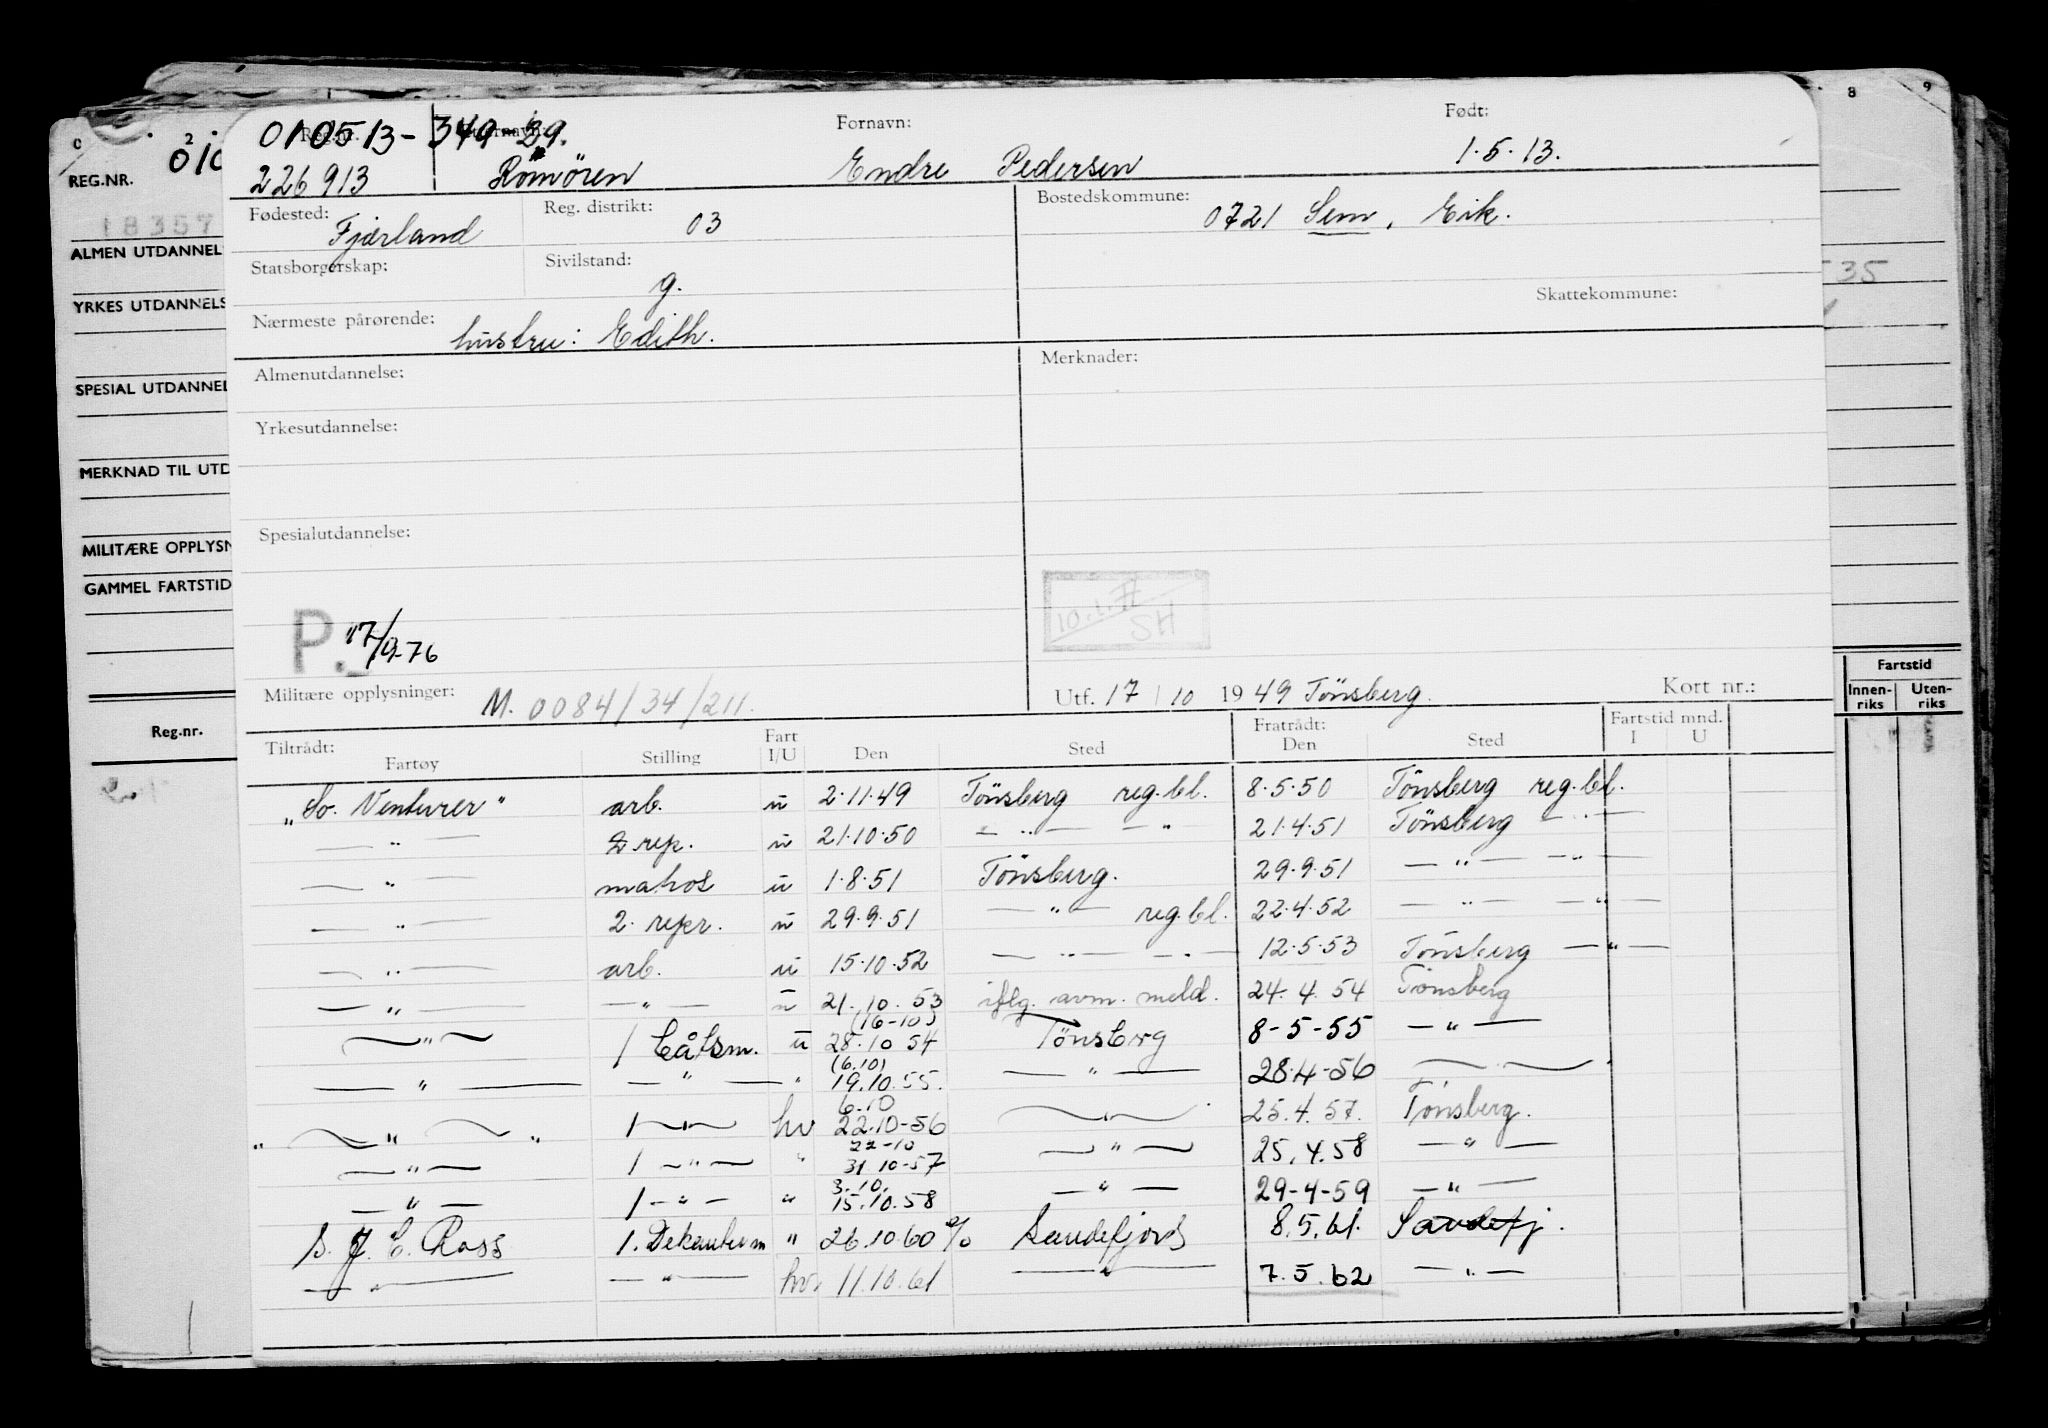 C 2 8 9
REG.NR. 010
18357
ALMEN UTDANNEL
YRKES UTDANNELS
SPESIAL UTDANNEL
MERKNAD TIL UTD
MILITÆRE OPPLYSN
GAMMEL FARTSTID
Reg.nr.
535
Fartstid
Innen-riks Uten-riks
010513-349-39. Fornavn: Født:
226913 Römören Endre Pedersen 1.5.13.
Fødested: Fjærland Reg. distrikt: 03 Bostedskommune: 0721 Sem, Eik.
Statsborgerskap: Sivilstand: g.
Skattekommune:
Nærmeste pårørende: hustru: Edith.
Almenutdannelse: Merknader:
Yrkesutdannelse:
Spesialutdannelse:
P. 17/9-76
SH
Militære opplysninger: M. 0084/34/211. Utf. 17/10 1949 Tönsberg. Kort nr.:
Tiltrådt: Fartøy Stilling Fart I/U Den Sted Fratrådt: Den Sted Fartstid mnd. I U
"So. Venturer" arb. u 2.11.49 Tönsberg reg.bl. 8.5.50 Tönsberg reg.bl.
— " — 2 rep. u 21.10.50 — " — — " 21.4.51 Tönsberg — " —
— " — matros u 1.8.51 Tönsberg. 29.9.51 — " — — " —
— " — 2. repr. u 29.9.51 — " — reg.bl. 22.4.52 — " — — " —
— " — arb. u 15.10.52 — " — — " — 12.5.53 Tönsberg — " —
— " — — " — u 21.10.53 iflg. avm. meld. 24.4.54 Tönsberg
— " — 1 båtsm. u (16-10) 28.10 54 Tönsberg 8-5-55 — " —
— " — — " — " (6.10) 19.10.55. — " — 28.4-56 — " —
" — " — " 1 — " — hv 6.10 22.10-56 — " — 25.4.57. Tönsberg.
— " — 1 — " — " 22-10 31.10-57 — " — 25.4.58 — " —
— " — 1 — " — " 3.10. 15.10.58 — " — 29-4-59 — " —
S. J. C. Ross 1. Dekantørm " 26.10.60 Sandefjord 8.5.61. Sandefj.
— " — — " — hv. 11.10.61 — " — 7.5.62 — " —